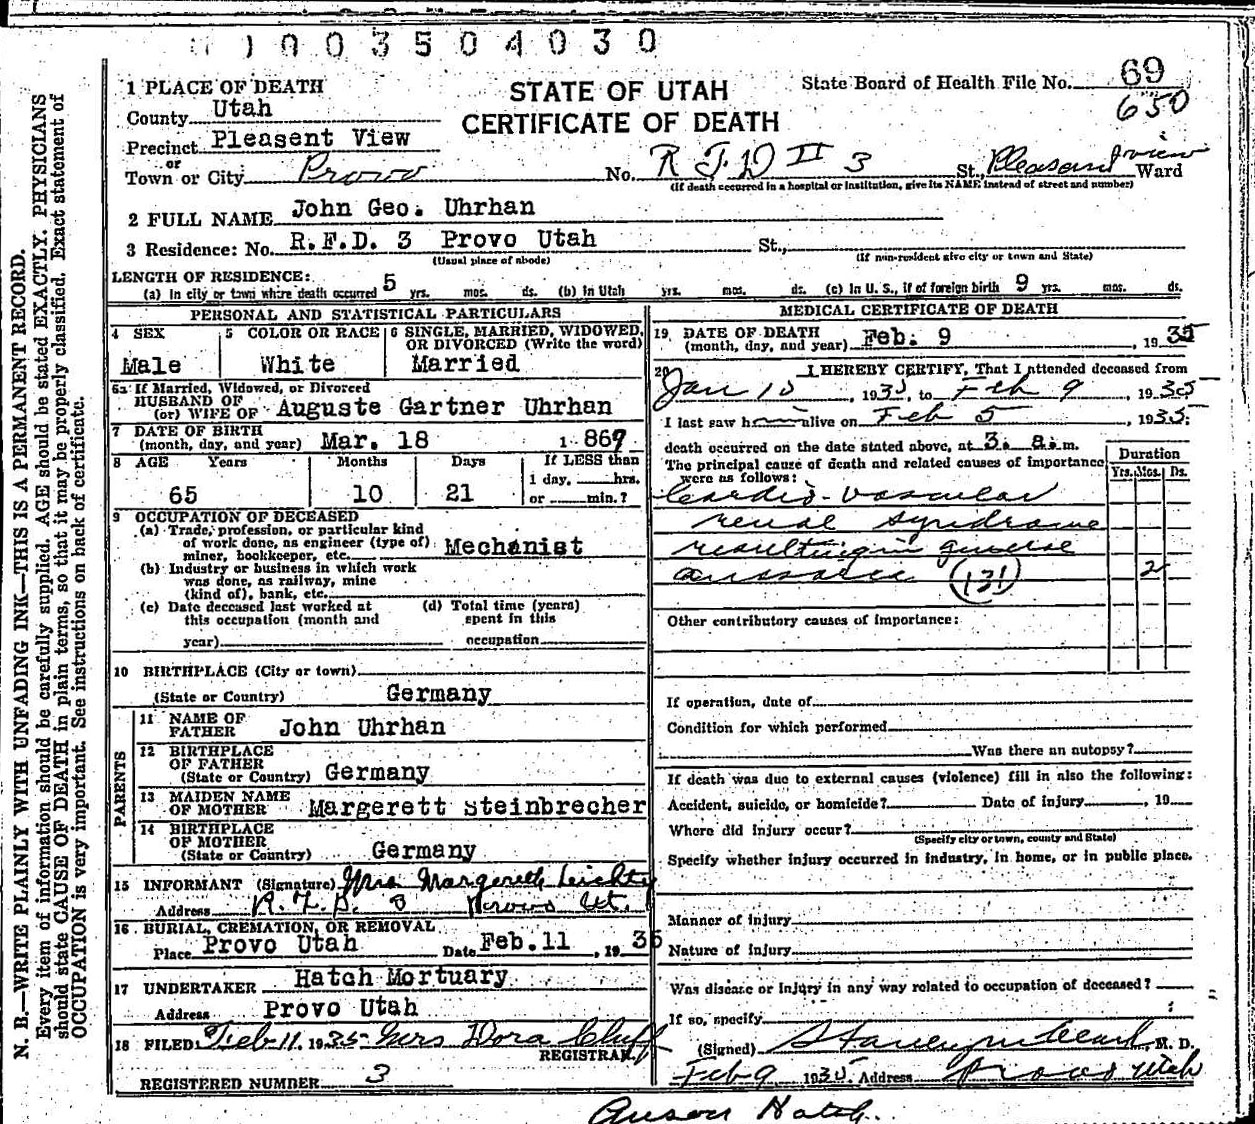 0 0 3 5 0 4 0 3 0
STATE OF UTAH
CERTIFICATE OF DEATH
State Board of Health File No. 69
650
1 PLACE OF DEATH
County Utah
Precinct Pleasent View
or
Town or City Provo No. R F D II 3 St., Pleasant view Ward
(If death occurred in a hospital or institution, give its NAME instead of street and number)
2 FULL NAME John Geo. Uhrhan
3 Residence: No. R.F.D. 3 Provo Utah St.,
(Usual place of abode) (If non-resident give city or town and State)
LENGTH OF RESIDENCE:
(a) In city or town where death occurred 5 yrs. mos. ds. (b) In Utah yrs. mos. ds. (c) In U. S., if of foreign birth 9 yrs. mos. ds.
PERSONAL AND STATISTICAL PARTICULARS
4 SEX
Male
5 COLOR OR RACE
White
6 SINGLE, MARRIED, WIDOWED,
OR DIVORCED (Write the word)
Married
6a If Married, Widowed, or Divorced
HUSBAND OF
(or) WIFE OF Auguste Gartner Uhrhan
7 DATE OF BIRTH
(month, day, and year) Mar. 18 1869
8 AGE Years Months Days If LESS than
1 day, hrs.
65 10 21 or min.?
9 OCCUPATION OF DECEASED
(a) Trade, profession, or particular kind
of work done, as engineer (type of)
miner, bookkeeper, etc. Mechanist
(b) Industry or business in which work
was done, as railway, mine
(kind of), bank, etc.
(c) Date deceased last worked at
this occupation (month and
year)
(d) Total time (years)
spent in this
occupation
10 BIRTHPLACE (City or town)
(State or Country) Germany
PARENTS
11 NAME OF
FATHER John Uhrhan
12 BIRTHPLACE
OF FATHER
(State or Country) Germany
13 MAIDEN NAME
OF MOTHER Margerett Steinbrecher
14 BIRTHPLACE
OF MOTHER
(State or Country) Germany
15 INFORMANT (Signature) Mrs Margereth Leichty
Address R. F. D. 3 Provo Ut.
16 BURIAL, CREMATION, OR REMOVAL
Place Provo Utah Date Feb.11, 1935
17 UNDERTAKER Hatch Mortuary
Address Provo Utah
18 FILED: Feb-11. 1935 Mrs Dora Cluff
REGISTRAR.
REGISTERED NUMBER 3
MEDICAL CERTIFICATE OF DEATH
19 DATE OF DEATH
(month, day, and year) Feb. 9, 1935
20 I HEREBY CERTIFY, That I attended deceased from
Jan 10, 1935, to Feb 9, 1935
I last saw h alive on Feb 5, 1935.
death occurred on the date stated above, at 3. a.m.
The principal cause of death and related causes of importance
were as follows:
Duration
Yrs. Mos. Ds.
Cardio-vascular
renal syndrome
resulting in general
anasarca (131) 2
Other contributory causes of importance:
If operation, date of
Condition for which performed
Was there an autopsy?
If death was due to external causes (violence) fill in also the following:
Accident, suicide, or homicide? Date of injury , 19
Where did injury occur?
(Specify city or town, county and State)
Specify whether injury occurred in industry, in home, or in public place.
Manner of injury
Nature of injury
Was disease or injury in any way related to occupation of deceased?
If so, specify
(Signed) M. D.
Feb 9 1935. Address Provo Utah
Anson Hatch.
N. B.—WRITE PLAINLY WITH UNFADING INK—THIS IS A PERMANENT RECORD.
Every item of information should be carefully supplied. AGE should be stated EXACTLY. PHYSICIANS
should state CAUSE OF DEATH in plain terms, so that it may be properly classified. Exact statement of
OCCUPATION is very important. See instructions on back of certificate.